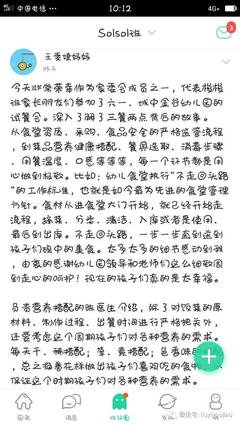 中国电信
10:12
4G
Solsol班
昨天
今天非常荣幸作为家委会成员之一，代表楷楷
班家长朋友们参加了六一、城中金谷幼儿园的
试餐会。深入了解了三餐两点背后的故事。
从食堂资质、采购、食品安全的严格监管流程
，到菜品营养健康搭配、餐具选取、消毒步骤
、用餐温度、口感等等等，每一个环节都是用
心做到极致。比如：幼儿食堂执行“不走回头路
”的工作标准，也就是如今最为先进的食堂管理
方针。食材从进食堂大门开始，就已经开始走
流程，晾菜、分类、清洁、入库或者是使用、
最后到出库。不走回头路，一步一步直到送到
孩子们碗中的美食。太多太多的细节感动到我
，由衷的感谢幼儿园领导和老师们这么细致周
到走心的呵护！现在的孩子们真的是太幸福。
负责营养搭配的
医生介绍，除了对饭菜的原
材料、制作过程、出餐时间进行严格把关外，
还要考虑这个周期孩子们对各种营养的需求。
每天干、稀搭配；荤、素搭配；色香味
，总之换着花样做出孩子们喜欢吃的食
保证这个时期孩子们对各种营养的需求。
消息
发现
我